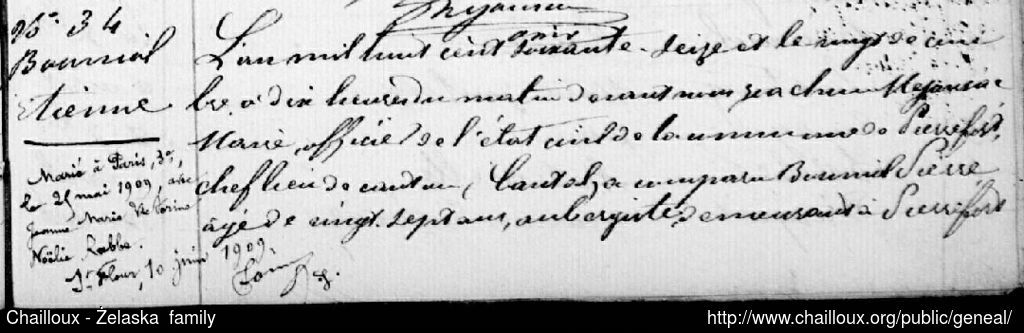 N° 34
Bourniol
Etienne
Marié à Paris, 3e,
le 25 mai 1909, avec
Jeanne Marie
Noëlie Rabbe.
St Flour, 10 juin 1909.
L'an mil huit cent soixante-seize et le vingt décem
bre à dix heures du matin devant nous
Maire, officier de l'état civil de la commune de Pierrefort,
chef lieu de canton (Cantal) a comparu Bourniol Pierre
âgé de vingt sept ans, aubergiste, demeurant à Pierrefort
Chailloux - Żelaska family
http://www.chailloux.org/public/geneal/